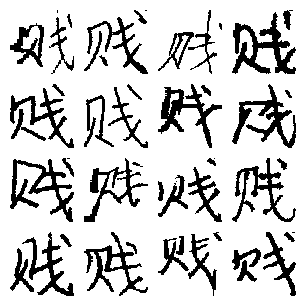 贱贱贱贱
贱贱贱贱
贱贱贱贱
贱贱贱贱